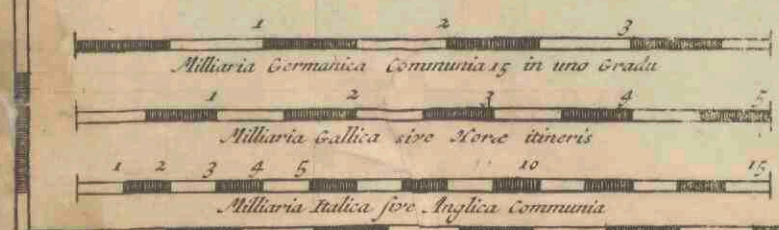 1 2 3
Milliaria Germanica Communia 15 in uno Gradu
1 2 3 4 5
Milliaria Gallica sive Horæ itineris
1 2 3 4 5 10 15
Milliaria Italica sive Anglica Communia